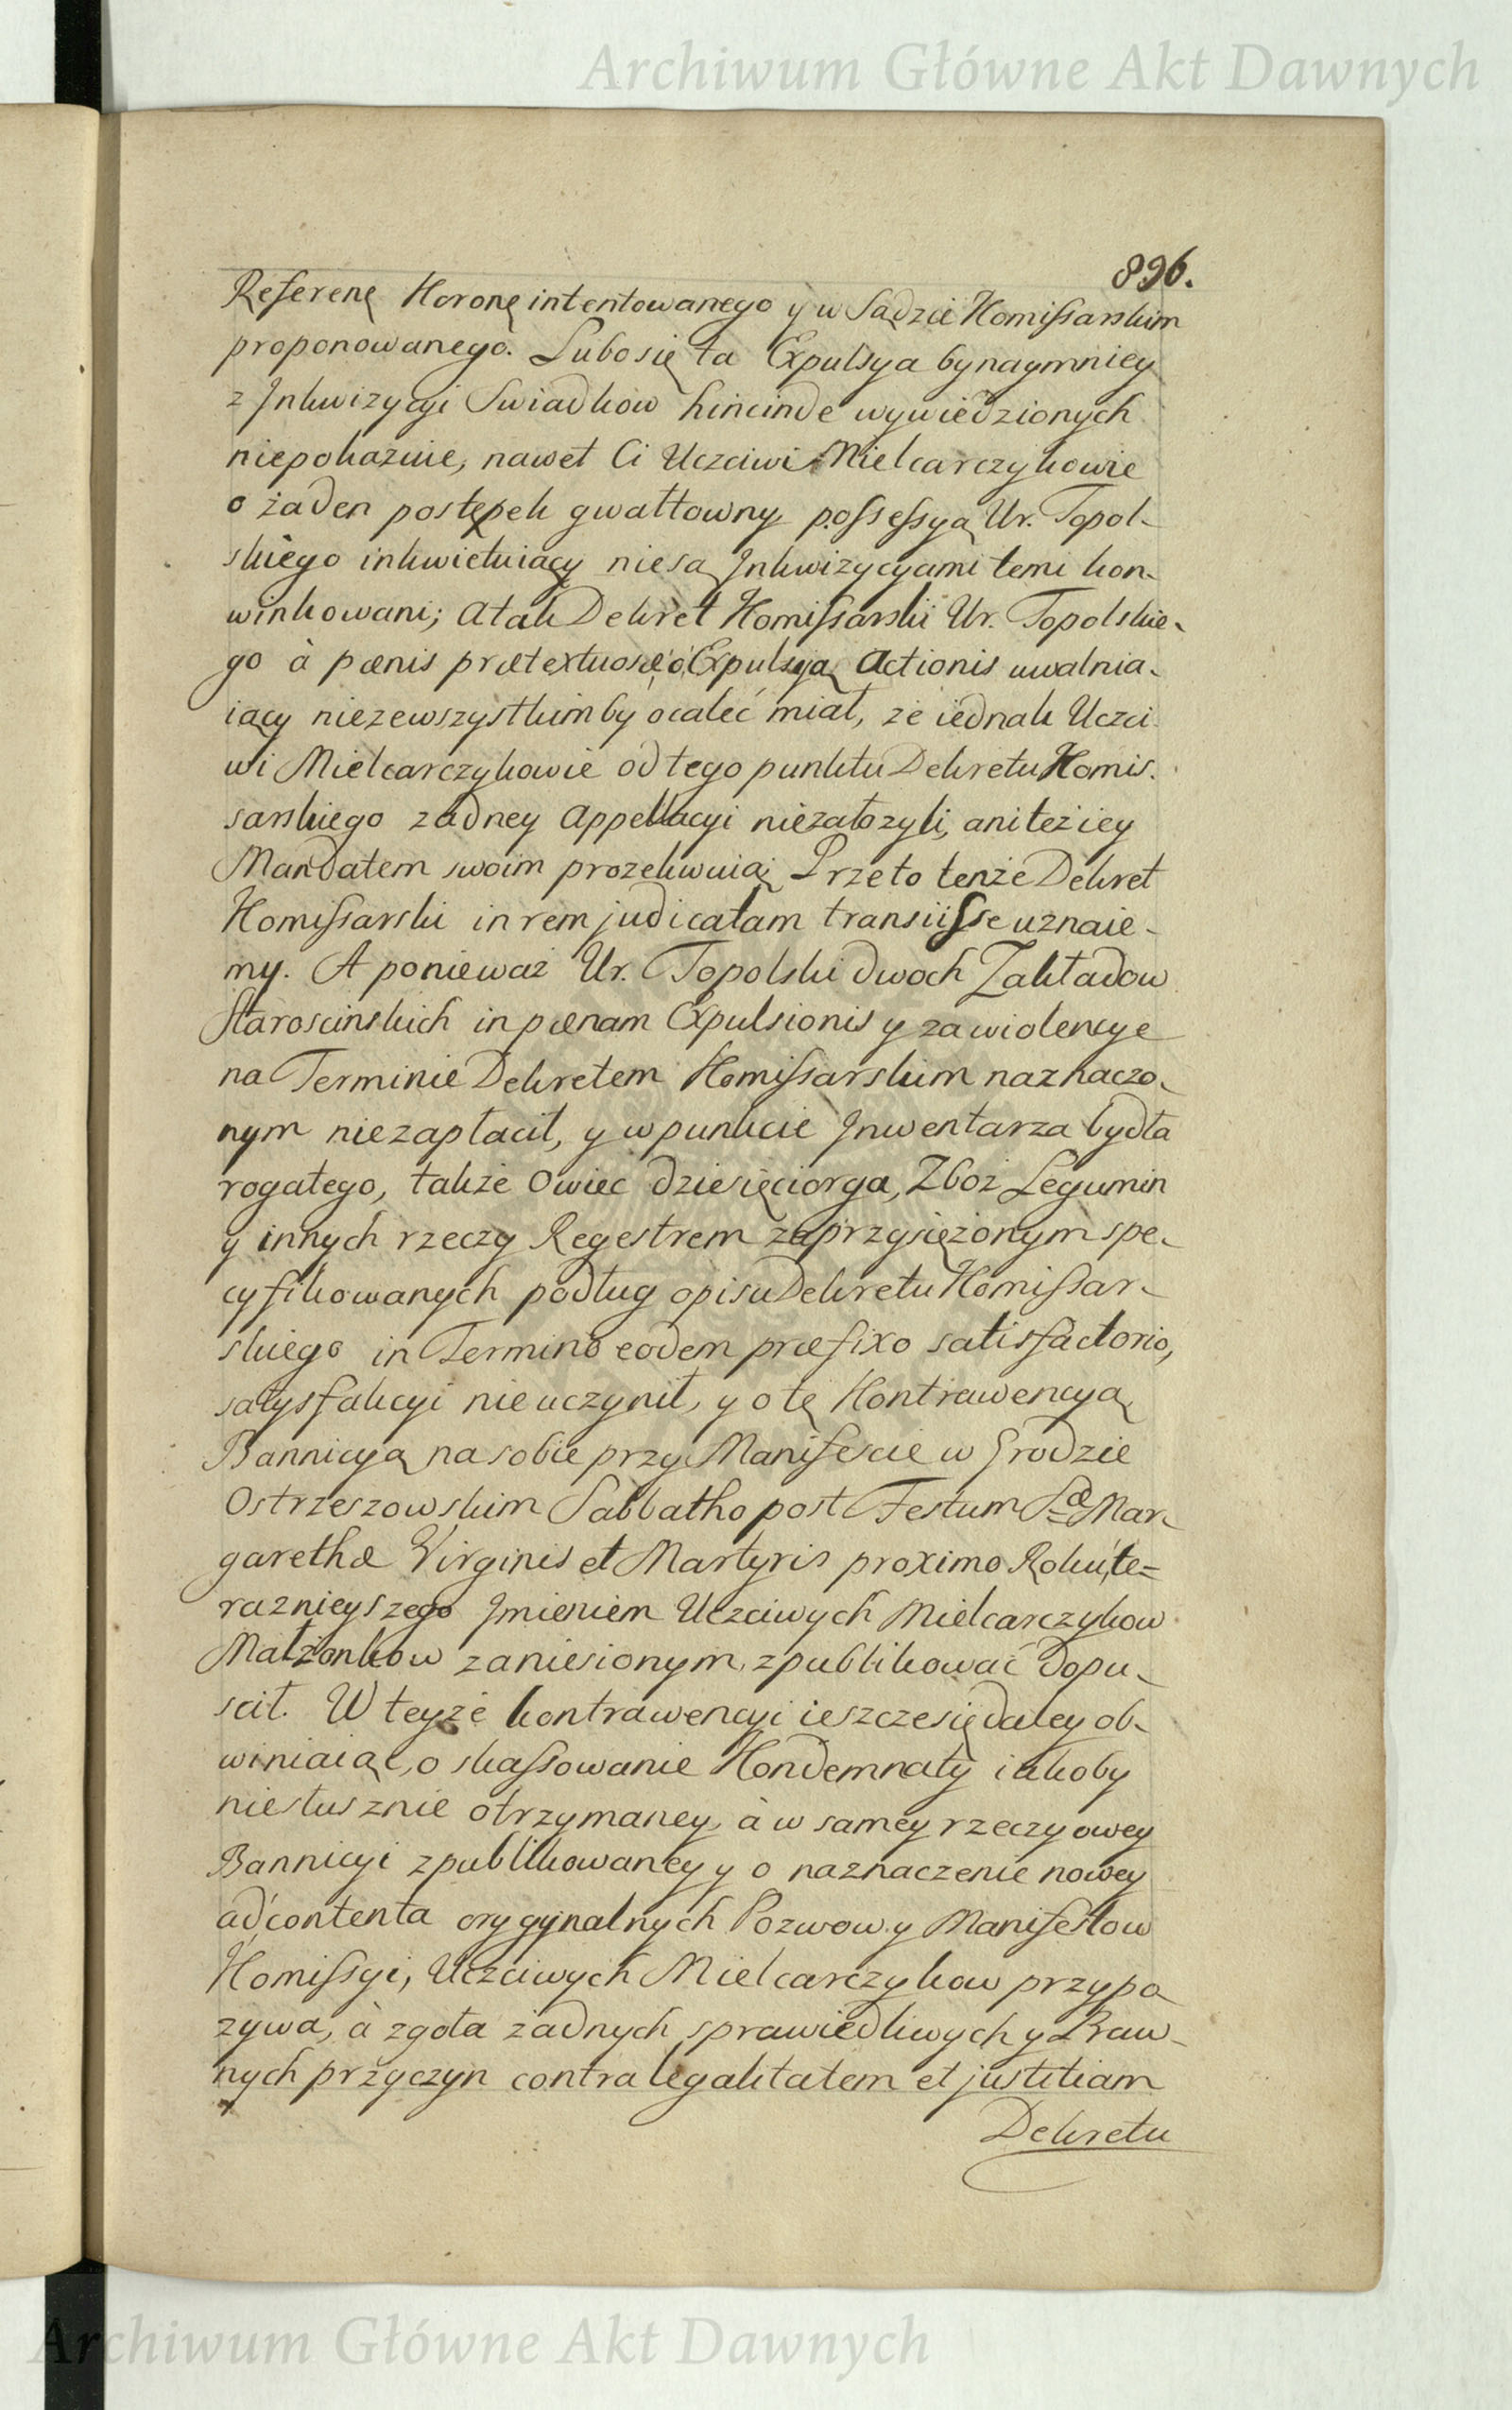 Archiwum Główne Akt Dawnych
896.
Referenę Koronę intentowanego y w Sądzie Komissarskim
proponowanego. Lubo się ta Expulsya bynaymniey
z Jnkwizycyi Swiadkow hincinde wywiedzionych
niepokazuie, nawet Ci Uczciwi Mielcarczykowie
o żaden postępek gwałtowny possessyą Ur. Topol-
skiego inkwietuiący niesą Jnkwizycyami temi kon-
winkowani; a tak Dekret Komissarski Ur. Topolskie-
go à pænis prætextuosæ ó Expulsyą Actionis uwalnia-
iący niezewszystkimby ocaleć miał, że iednak Uczci
wi Mielcarczykowie od tego punktu Dekretu Komis-
sarskiego zadney Appellacyi niezałozyli, ani też iey
Mandatem swoim prozekwuią; Przeto tenże Dekret
Komissarski in rem judicatam transiisse uznaie-
my. A ponieważ Ur. Topolski dwoch Zakładow
Staroscinskich in pænam Expulsionis y za wiolencye
na Terminie Dekretem Komissarskim naznaczo-
nym niezapłacił, y w punkcie Jnwentarza bydła
rogatego, także Owiec dziesięciorga, Zboż Legumin
y innych rzeczy Regestrem zaprzysiężonym spe-
cyfikowanych podług opisu Dekretu Komissar-
skiego in Termino eodem præfixo satisfactorio,
satysfakcyi nie uczynił, y o tę Kontrawencyą
Bannicyą na sobie przy Manifescie w Grodzie
Ostrzeszowskim Sabbatho post Festum Sæ Mar-
garethæ Virginis et Martyris proximo Roku te=
raznieyszego Jmieniem Uczciwych Mielcarczykow
Małżonkow zaniesionym, zpublikować dopu-
scił. W teyże kontrawencyi ieszcze się daley ob-
winiaiąc, o skassowanie Kondemnaty iakoby
niesłusznie otrzymaney, à w samey rzeczy owey
Bannicyi zpublikowaney y o naznaczenie nowey
ad contenta orygynalnych Pozwow y Manifestow
Komissyi, Uczciwych Mielcarczykow przypo
zywa, à zgoła żadnych sprawiedliwych y Praw-
nych przyczyn contra legalitatem et justitiam
Dekretu
Archiwum Główne Akt Dawnych